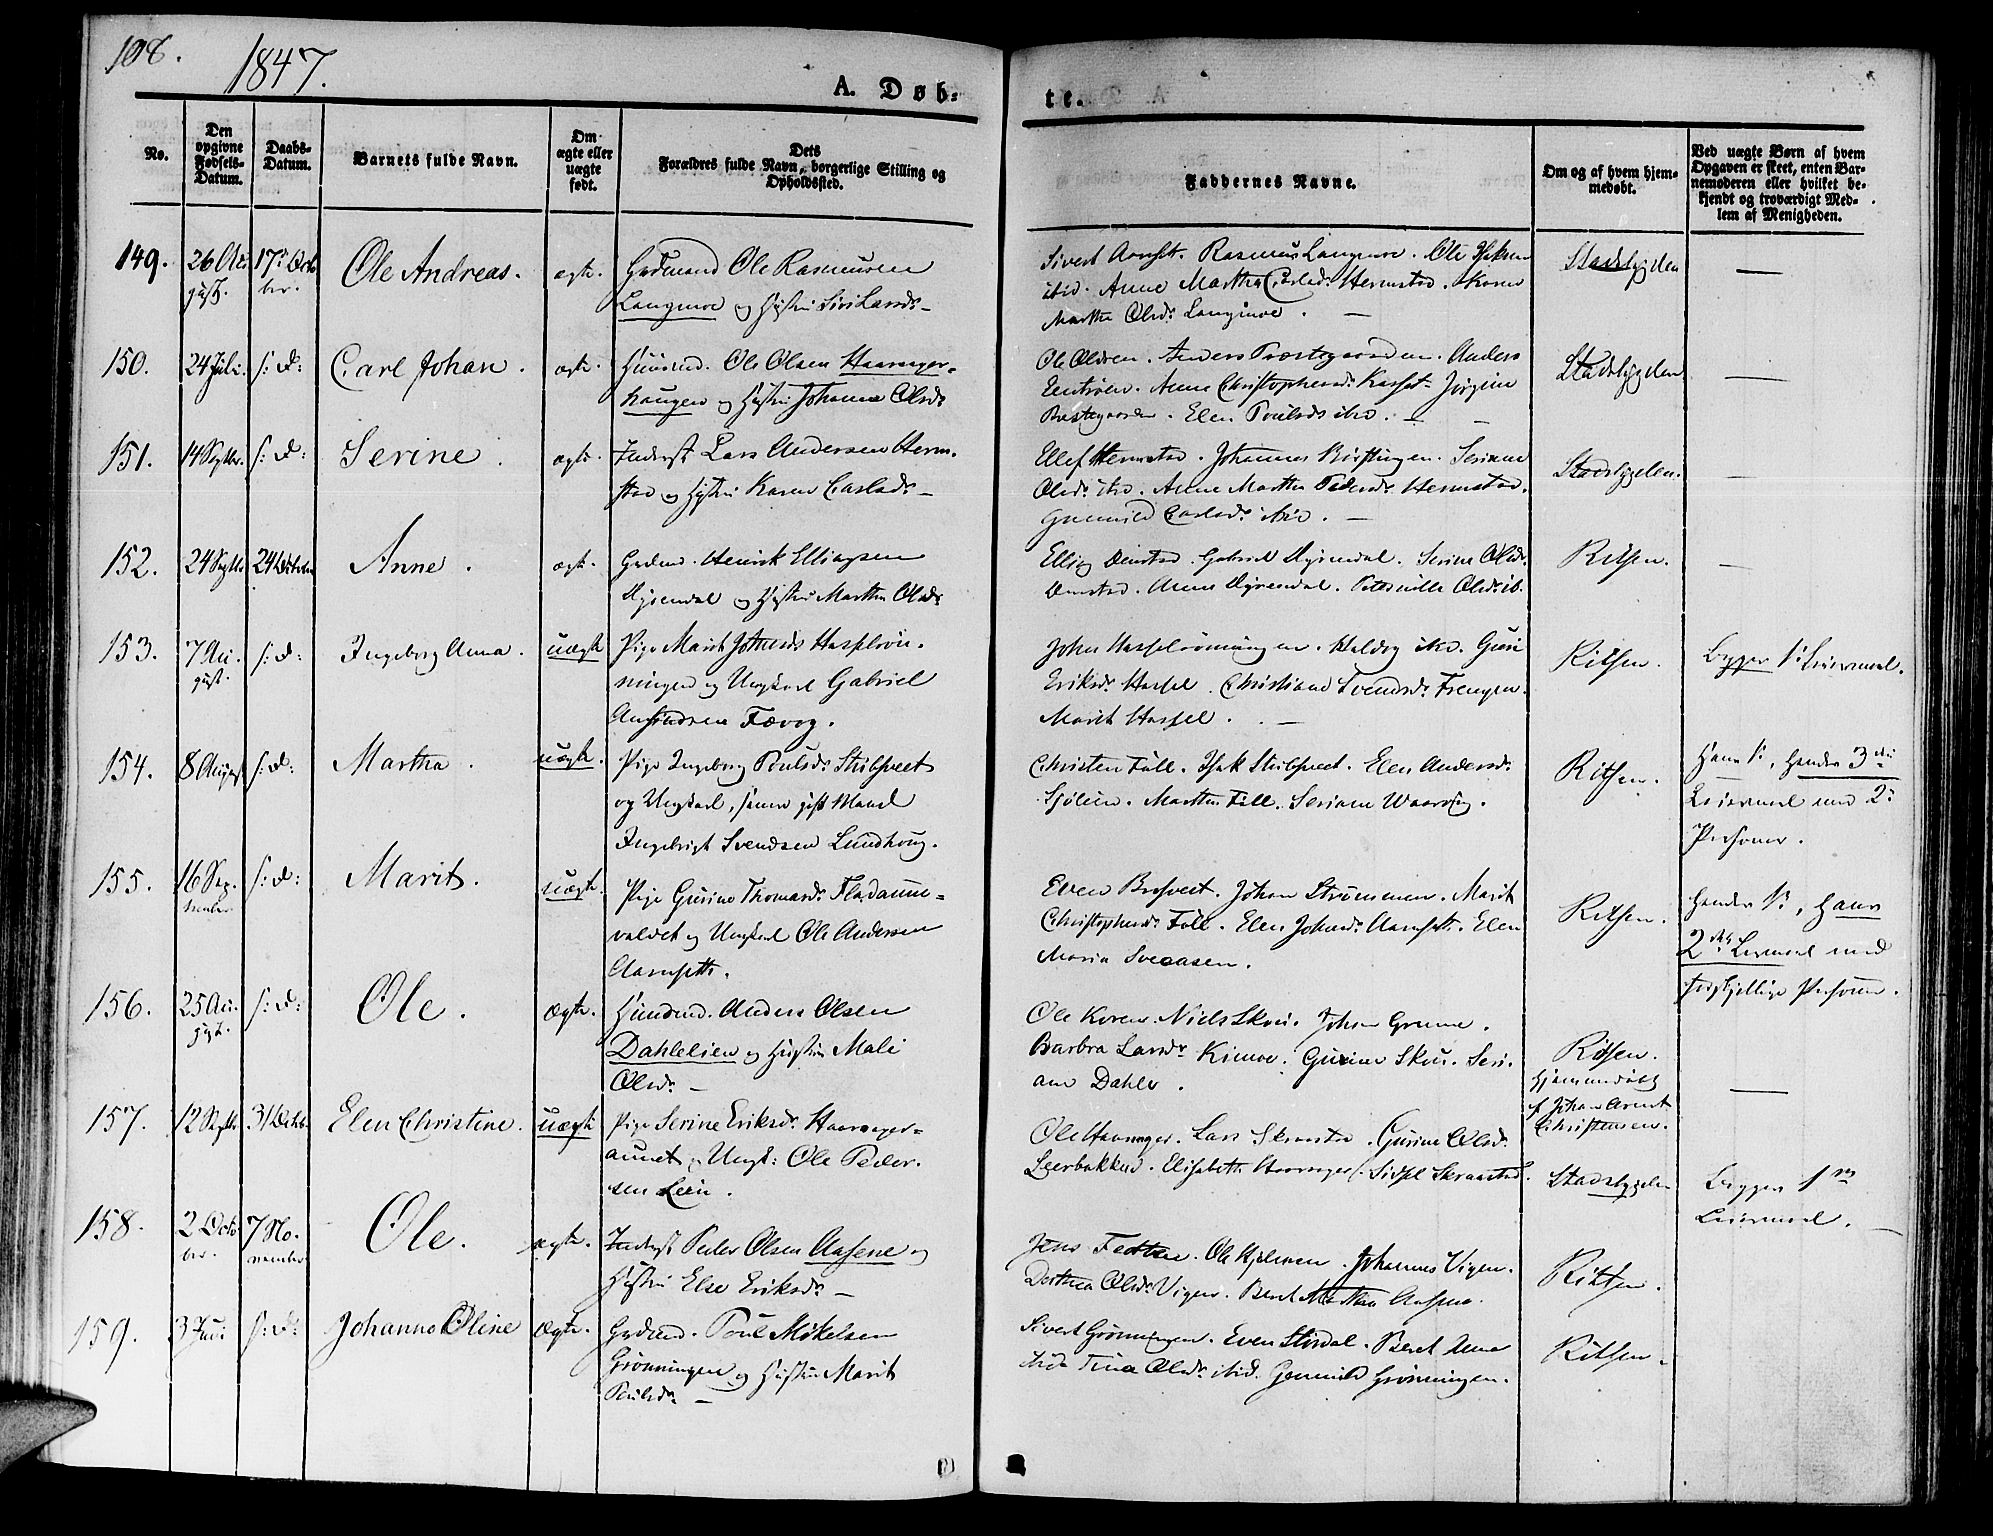 108.
1847.
A. Døb-
te.
No.
Den opgivne Fødsels-Datum.
Daabs-Datum.
Barnets fulde Navn.
Om ægte eller uægte født.
Dets Forældres fulde Navn, borgerlige Stilling og Opholdsfted.
Faddernes Navne.
Om og af hvem hjem-medøbt.
Ved uægte Børn af hvem Opgaven er skeet, enten Bar-nemoderen eller hvilket be-kjendt og troværdigt Med-lem af Menigheden.
149.
26 Au-
gust.
17 Octo
ber.
Ole Andreas.
ægte.
Gdmand Ole Rasmusen
Langmoe og Hustru Siri Larsdr –
Sivert Aunset. Rasmus Langmoe. Ole
ibid. Anne Martha Carlsdr Hermstad. Karen
Martha Olsdr Langmoe. –
Stadsbygden
—
150.
24 Juli.
s: D:
Carl Johan.
ægte.
Huusmd. Ole Olsen Haarager-
haugen og Hustru Johanna Olsdr
Ole Olsen. Anders Præstegaarden. Anders
Anne Christophersdr Jørgine
Præstegaarden. Elen Poulsdr ibid. –
Stadsbygden
—
151.
14 Septbr.
s: D:
Serine.
ægte.
Inderst Lars Andersen Herm-
stad og Hustru Karen Carlsdr –
Ellef Hermstad. Johannes Serianne
Olsdr ibid. Anne Martha Pedersdr Hermstad.
Gunnild Carlsdr ibid. –
Stadsbygden.
—
152.
24 Septbr
24 October
Anne.
ægte.
Gdmd. Henrik Ellingsen
Dyrendal og Hustru Martha Olsdr
Elling Denstad. Gabriel Dyrendal. Serine Olsdr
Denstad. Anne Dyrendal. Peternille Olsdr ib.
Ritsen.
—
153.
7 Au-
gust.
s: D:
Ingeborg Anna.
uægte
Pige Marit Johnsdr Hasselrøn-
ningen og Ungkarl Gabriel
Amundsen Fævog.
John Hasselrønningen. ibid. Guri
Eriksdr Hassel. Christiane Svendsdr Frengen.
Marit Hassel. –
Ritsen.
begges 1ste Leiermaal.
154.
8 August
s: D:
Martha.
uægte.
Pige Ingeborg Poulsdr
og Ungkarl, senere gift Mand
Ingebrigt Svendsen Lundhoug.
Christen Fill. Isak Elen Andersdr
Sjølien. Martha Fill. Seriane
Ritsen.
Hans 1ste, Hendes 3die
Leiermaal med 2de
Personer.
155.
16 Sep-
tember
s: D:
Marit.
uægte.
Pige Gurine Thomasdr Fladaune-
valdet og Ungkarl Ole Andersen
Aarnseth.
Even Johan Strømmen. Marit
Christophersdr Fill. Elen Johnsdr Aarnseth. Elen
Maria Sveaasen.
Ritsen.
Hendes 1ste, Hans
2det Leiermaal med
forskjellige Personer.
156.
25 Au-
gust.
s: D:
Ole.
Ægte.
Huusmd. Anders Olsen
Dahlelien og Hustru Mali
Olsdr –
Ole Koren. Niels Skou. Johan
Barbra Larsdr Kimoe. Gurine Skou. Seri-
ane Dahle.
Ritsen.
hjemmedøbt
af Johan Arent
Christensen.
—
157.
12 Septbr
31 Octbr
Elen Christine.
uægte
Pige Serine Eriksdr Haarager-
aunet og Ungk: Ole Peder-
sen Lein.
Ole Haarager. Lars Skrenstad. Gurine Olsdr
Leerbakken. Elisabeth Haarager. Sidsel Skraastad.
Stadsbygden
Begges 1ste
Leiermaal. –
158.
2 Octo
ber.
7 No-
vember
Ole.
ægte.
Inderst Peder Olsen Aasene og
Hustru Else Eriksdr –
Jens Ole Hjelmen. Johannes Vigen.
Dorthea Olsdr Vigen. Beret Martha Aasene.
Ritsen.
159.
3 Juli
s: D:
Johanna Oline
Ægte.
Gdmd. Poul Mikelsen
Grønningen og Hustru Marit
Poulsdr –
Sivert Grønningen. Even Stordal. Beret Anna
ibid. Tina Olsdr ibid. Gunnild Grønningen.
Ritsen.